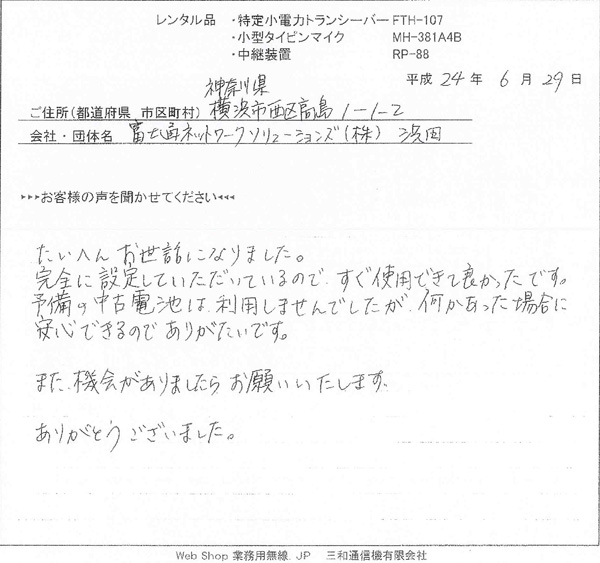 レンタル品 ・特定小電力トランシーバーFTH-107
・小型タイピンマイク MH-381A4B
・中継装置 RP-88
平成 24 年 6 月 29 日
神奈川県
ご住所(都道府県 市区町村) 横浜市西区高島1-1-2
会社・団体名 富士通ネットワークソリューションズ(株) 浜田
▸▸▸お客様の声を聞かせてください◂◂◂
たいへん お世話になりました。
完全に設定していただいているので、すぐ使用できて良かったです。
予備の中古電池は、利用しませんでしたが、何かあった場合に
安心できるので ありがたいです。
また、機会がありましたら お願いいたします。
ありがとうございました。
Web Shop 業務用無線.JP 三和通信機有限会社